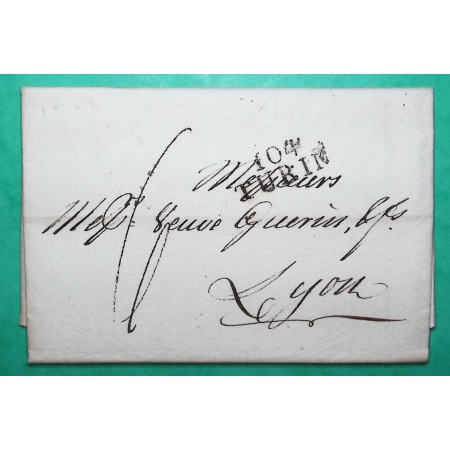 104
TURIN
Messieurs
Mess.rs Veuve Guerin, & fs.
Lyon